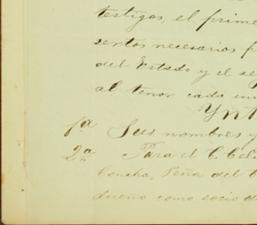 testigos, el prime
sertos necesarios p
del Estado y el se
al tenor cada un
1ª Sus nombres y
2ª Para el C. Cel
Concha, Peña del
dueño como socio d